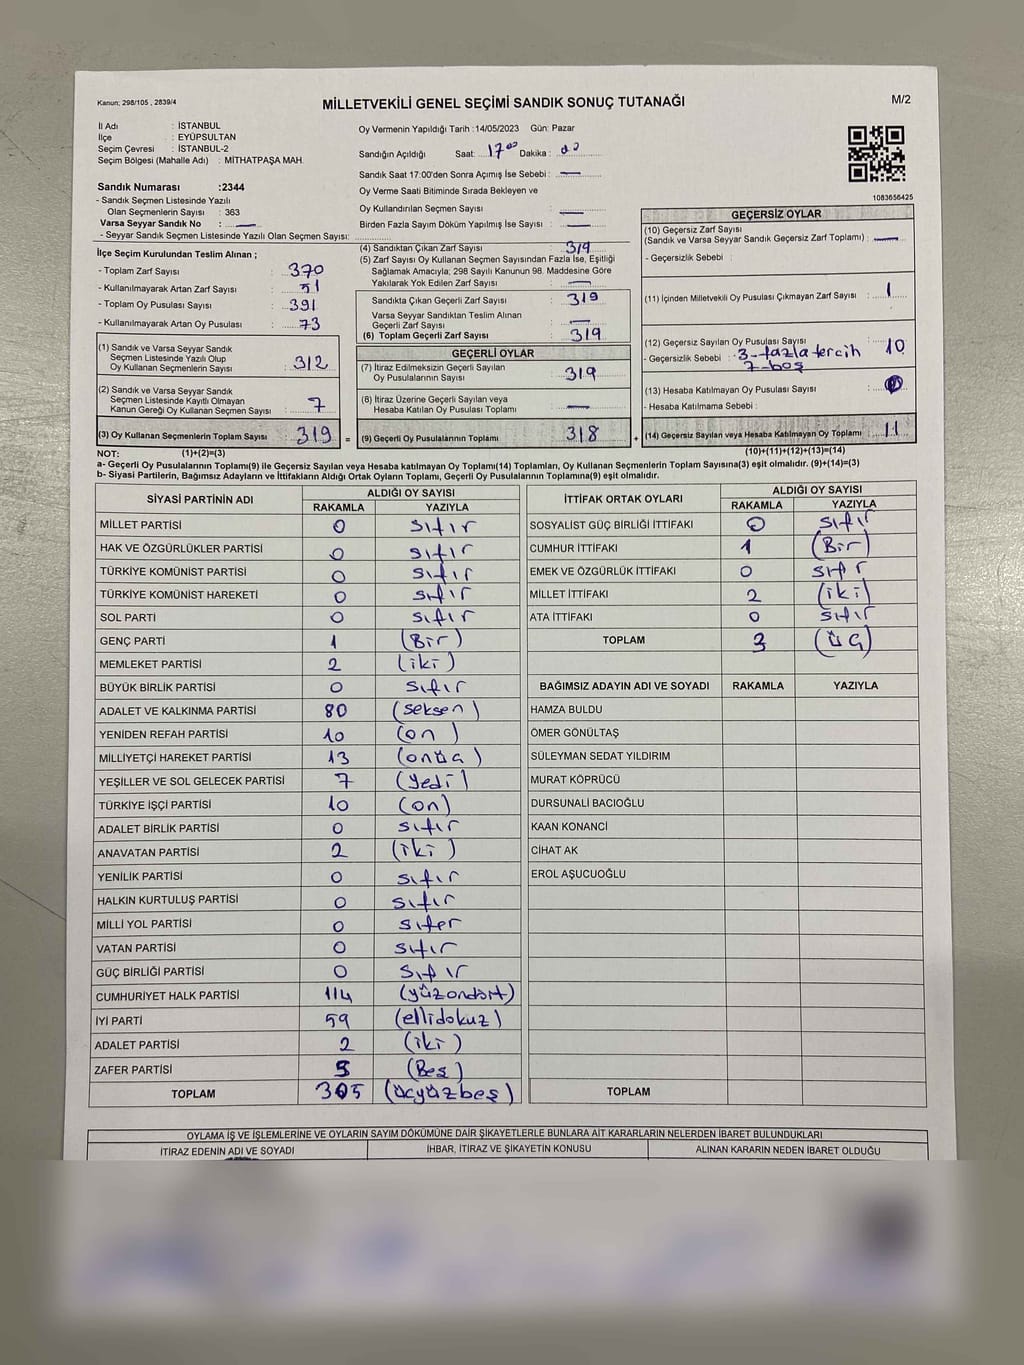 Kanun; 298/105 , 2839/4
MİLLETVEKİLİ GENEL SEÇİMİ SANDIK SONUÇ TUTANAĞI
M/2
İl Adı : İSTANBUL
İlçe : EYÜPSULTAN
Seçim Çevresi : İSTANBUL-2
Seçim Bölgesi (Mahalle Adı) : MİTHATPAŞA MAH.
Sandık Numarası :2344
- Sandık Seçmen Listesinde Yazılı
Olan Seçmenlerin Sayısı : 363
Varsa Seyyar Sandık No : —
- Seyyar Sandık Seçmen Listesinde Yazılı Olan Seçmen Sayısı:
Oy Vermenin Yapıldığı Tarih :14/05/2023 Gün: Pazar
Sandığın Açıldığı Saat: 17 00 Dakika :
Sandık Saat 17:00'den Sonra Açımış İse Sebebi : —
Oy Verme Saati Bitiminde Sırada Bekleyen ve
Oy Kullandırılan Seçmen Sayısı : —
Birden Fazla Sayım Döküm Yapılmış İse Sayısı : —
1083656425
İlçe Seçim Kurulundan Teslim Alınan ;
- Toplam Zarf Sayısı : 370
- Kullanılmayarak Artan Zarf Sayısı : 51
- Toplam Oy Pusulası Sayısı : 391
- Kullanılmayarak Artan Oy Pusulası : 73
(1) Sandık ve Varsa Seyyar Sandık
Seçmen Listesinde Yazılı Olup
Oy Kullanan Seçmenlerin Sayısı : 312
(2) Sandık ve Varsa Seyyar Sandık
Seçmen Listesinde Kayıtlı Olmayan
Kanun Gereği Oy Kullanan Seçmen Sayısı : 7
(3) Oy Kullanan Seçmenlerin Toplam Sayısı : 319 =
(4) Sandıktan Çıkan Zarf Sayısı : 319
(5) Zarf Sayısı Oy Kullanan Seçmen Sayısından Fazla İse, Eşitliği
Sağlamak Amacıyla; 298 Sayılı Kanunun 98. Maddesine Göre
Yakılarak Yok Edilen Zarf Sayısı : —
Sandıkta Çıkan Geçerli Zarf Sayısı : 319
Varsa Seyyar Sandıktan Teslim Alınan
Geçerli Zarf Sayısı : —
(6) Toplam Geçerli Zarf Sayısı : 319
GEÇERLİ OYLAR
(7) İtiraz Edilmeksizin Geçerli Sayılan
Oy Pusulalarının Sayısı : 319
(8) İtiraz Üzerine Geçerli Sayılan veya
Hesaba Katılan Oy Pusulası Toplamı : —
(9) Geçerli Oy Pusulalarının Toplamı : 318 +
GEÇERSİZ OYLAR
(10) Geçersiz Zarf Sayısı
(Sandık ve Varsa Seyyar Sandık Geçersiz Zarf Toplamı) : —
- Geçersizlik Sebebi :
(11) İçinden Milletvekili Oy Pusulası Çıkmayan Zarf Sayısı : 1
(12) Geçersiz Sayılan Oy Pusulası Sayısı : 10
- Geçersizlik Sebebi : 3-fazla tercih
7-boş
(13) Hesaba Katılmayan Oy Pusulası Sayısı :
- Hesaba Katılmama Sebebi :
(14) Geçersiz Sayılan veya Hesaba Katılmayan Oy Toplamı : 11
NOT: (1)+(2)=(3) (10)+(11)+(12)+(13)=(14)
a- Geçerli Oy Pusulalarının Toplamı(9) ile Geçersiz Sayılan veya Hesaba katılmayan Oy Toplamı(14) Toplamları, Oy Kullanan Seçmenlerin Toplam Sayısına(3) eşit olmalıdır. (9)+(14)=(3)
b- Siyasi Partilerin, Bağımsız Adayların ve İttifakların Aldığı Ortak Oyların Toplamı, Geçerli Oy Pusulalarının Toplamına(9) eşit olmalıdır.
SİYASİ PARTİNİN ADI ALDIĞI OY SAYISI
RAKAMLA YAZIYLA
MİLLET PARTİSİ 0 sıfır
HAK VE ÖZGÜRLÜKLER PARTİSİ 0 sıfır
TÜRKİYE KOMÜNİST PARTİSİ 0 sıfır
TÜRKİYE KOMÜNİST HAREKETİ 0 sıfır
SOL PARTİ 0 sıfır
GENÇ PARTİ 1 (Bir)
MEMLEKET PARTİSİ 2 (iki)
BÜYÜK BİRLİK PARTİSİ 0 sıfır
ADALET VE KALKINMA PARTİSİ 80 (seksen)
YENİDEN REFAH PARTİSİ 10 (on)
MİLLİYETÇİ HAREKET PARTİSİ 13 (onüç)
YEŞİLLER VE SOL GELECEK PARTİSİ 7 (yedi)
TÜRKİYE İŞÇİ PARTİSİ 10 (on)
ADALET BİRLİK PARTİSİ 0 sıfır
ANAVATAN PARTİSİ 2 (iki)
YENİLİK PARTİSİ 0 sıfır
HALKIN KURTULUŞ PARTİSİ 0 sıfır
MİLLİ YOL PARTİSİ 0 sıfer
VATAN PARTİSİ 0 sıfır
GÜÇ BİRLİĞİ PARTİSİ 0 sıfır
CUMHURİYET HALK PARTİSİ 114 (yüzondört)
İYİ PARTİ 59 (ellidokuz)
ADALET PARTİSİ 2 (iki)
ZAFER PARTİSİ 5 (Beş)
TOPLAM 305 (üçyüzbeş)
İTTİFAK ORTAK OYLARI ALDIĞI OY SAYISI
RAKAMLA YAZIYLA
SOSYALİST GÜÇ BİRLİĞİ İTTİFAKI 0 sıfır
CUMHUR İTTİFAKI 1 (Bir)
EMEK VE ÖZGÜRLÜK İTTİFAKI 0 sıfır
MİLLET İTTİFAKI 2 (iki)
ATA İTTİFAKI 0 sıfır
TOPLAM 3 (üç)
BAĞIMSIZ ADAYIN ADI VE SOYADI RAKAMLA YAZIYLA
HAMZA BULDU
ÖMER GÖNÜLTAŞ
SÜLEYMAN SEDAT YILDIRIM
MURAT KÖPRÜCÜ
DURSUNALİ BACIOĞLU
KAAN KONANCİ
CİHAT AK
EROL AŞUCUOĞLU
TOPLAM
OYLAMA İŞ VE İŞLEMLERİNE VE OYLARIN SAYIM DÖKÜMÜNE DAİR ŞİKAYETLERLE BUNLARA AİT KARARLARIN NELERDEN İBARET BULUNDUKLARI
İTİRAZ EDENİN ADI VE SOYADI İHBAR, İTİRAZ VE ŞİKAYETİN KONUSU ALINAN KARARIN NEDEN İBARET OLDUĞU